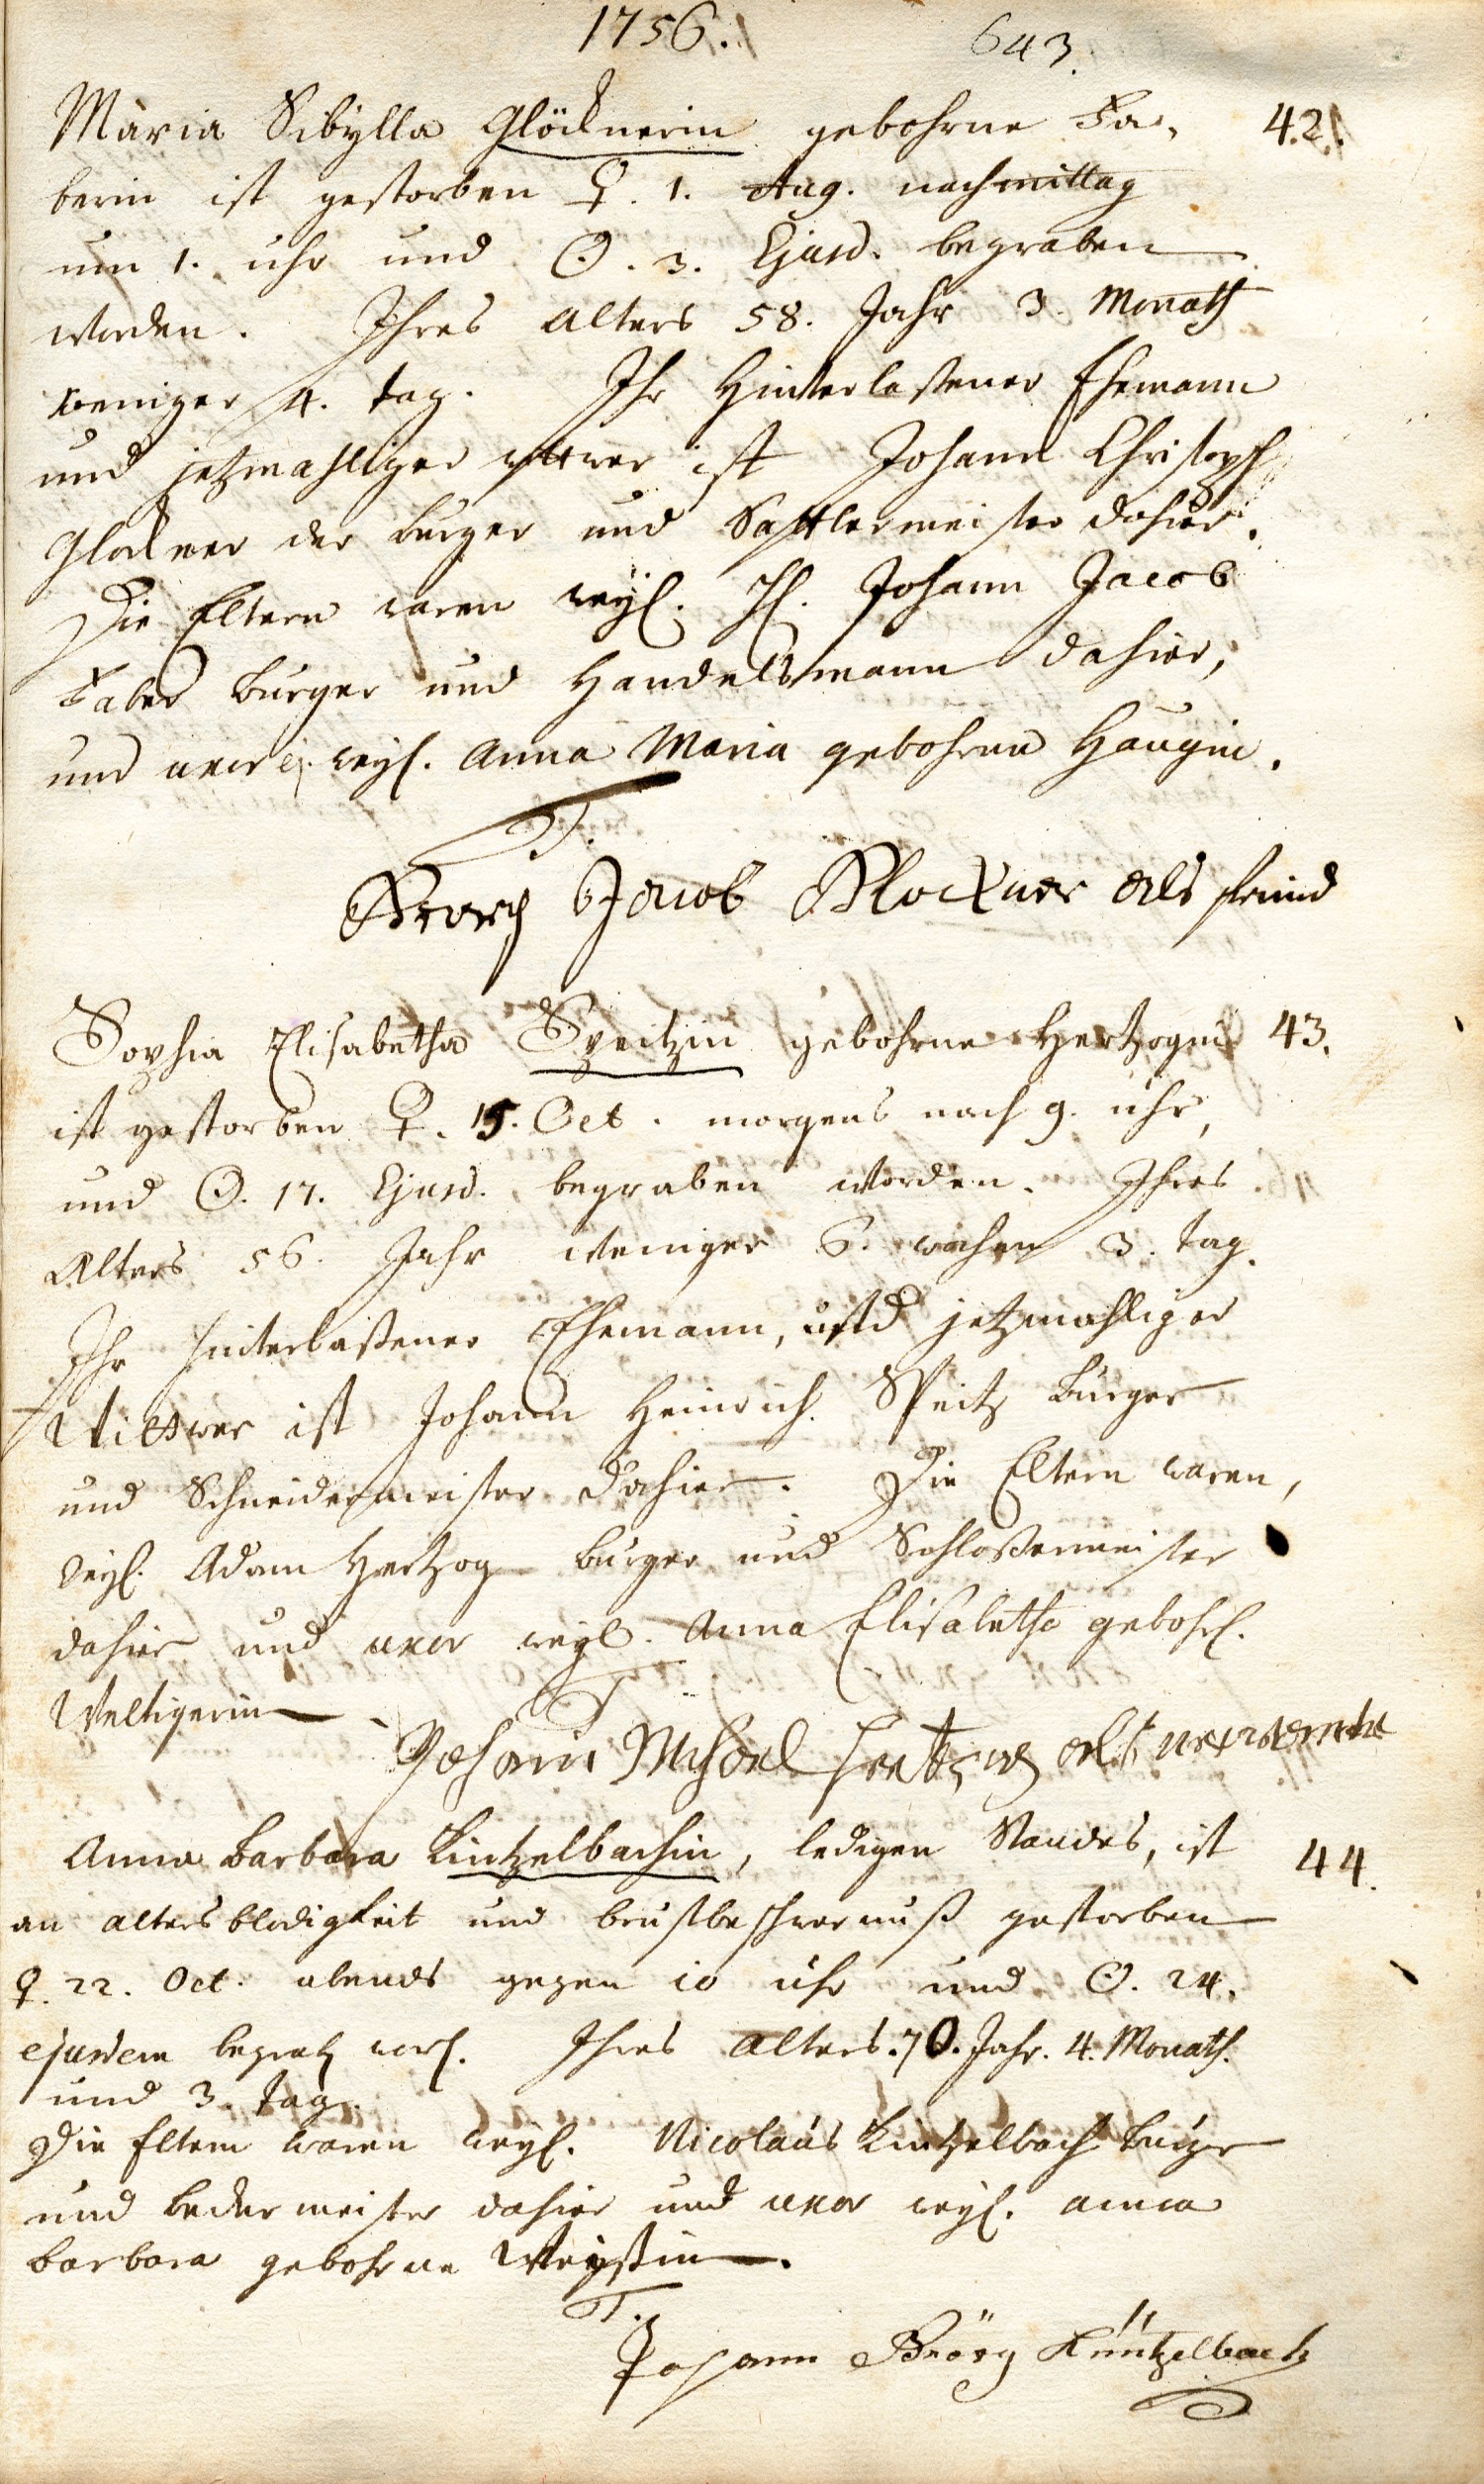 1756.
643.
Maria Sibylla Glöcknerin gebohrne Fa-
42.
berin ist gestorben ♀. 1. Aug. nachmittag
um 1. uhr und ☉. 3. Ejusd. begraben
worden. Ihres Alters 58. Jahr 3. Monath
weniger 4. tag. Ihr Hinterlaßener Ehemann
und jetzmahliger wittwer ist Johann Christoph
Glöckner der burger und Sattlermeister dahier.
Die Eltern waren weyl. H. Johann Jacob
Faber burger und Handelsmann dahier,
und uxor ej. weyl. Anna Maria gebohrne Haugin.
T.
Georg Jacob Glockner als freind
Sophia Elisabetha Speitzin gebohrne Hertzogin
43.
ist gestorben ♀. 15. Oct. morgens nach 9. uhr,
und ☉. 17. Ejusd. begraben worden. Ihres
Alters 56. Jahr weniger 6. wochen 3. tag.
Ihr hinterlaßener Ehemann, und jetzmahliger
Wittwer ist Johann Heinrich Speitz burger
und Schneidermeister dahier. Die Eltern waren,
weyl. Adam Hertzog burger und Schloßermeister
dahier und uxor weyl. Anna Elisabetha gebohr.
Weltigerin
T
Johann Michael Hertzog als
Anna Barbara Kintzelbachin, ledigen Standes, ist
44.
an altersblödigkeit und brustbeschwernuß gestorben
♀. 22. Oct. abends gegen 10 uhr und ☉. 24.
ejusdem begrab. word. Ihres Alters. 70. Jahr. 4. Monath.
und 3. tag.
Die Eltern waren weyl. Nicolaus Kintzelbach burger
und beckermeister dahier und uxor weyl. anna
barbara gebohrne Weyßin.
T.
Johann Geörg Küntzelbach